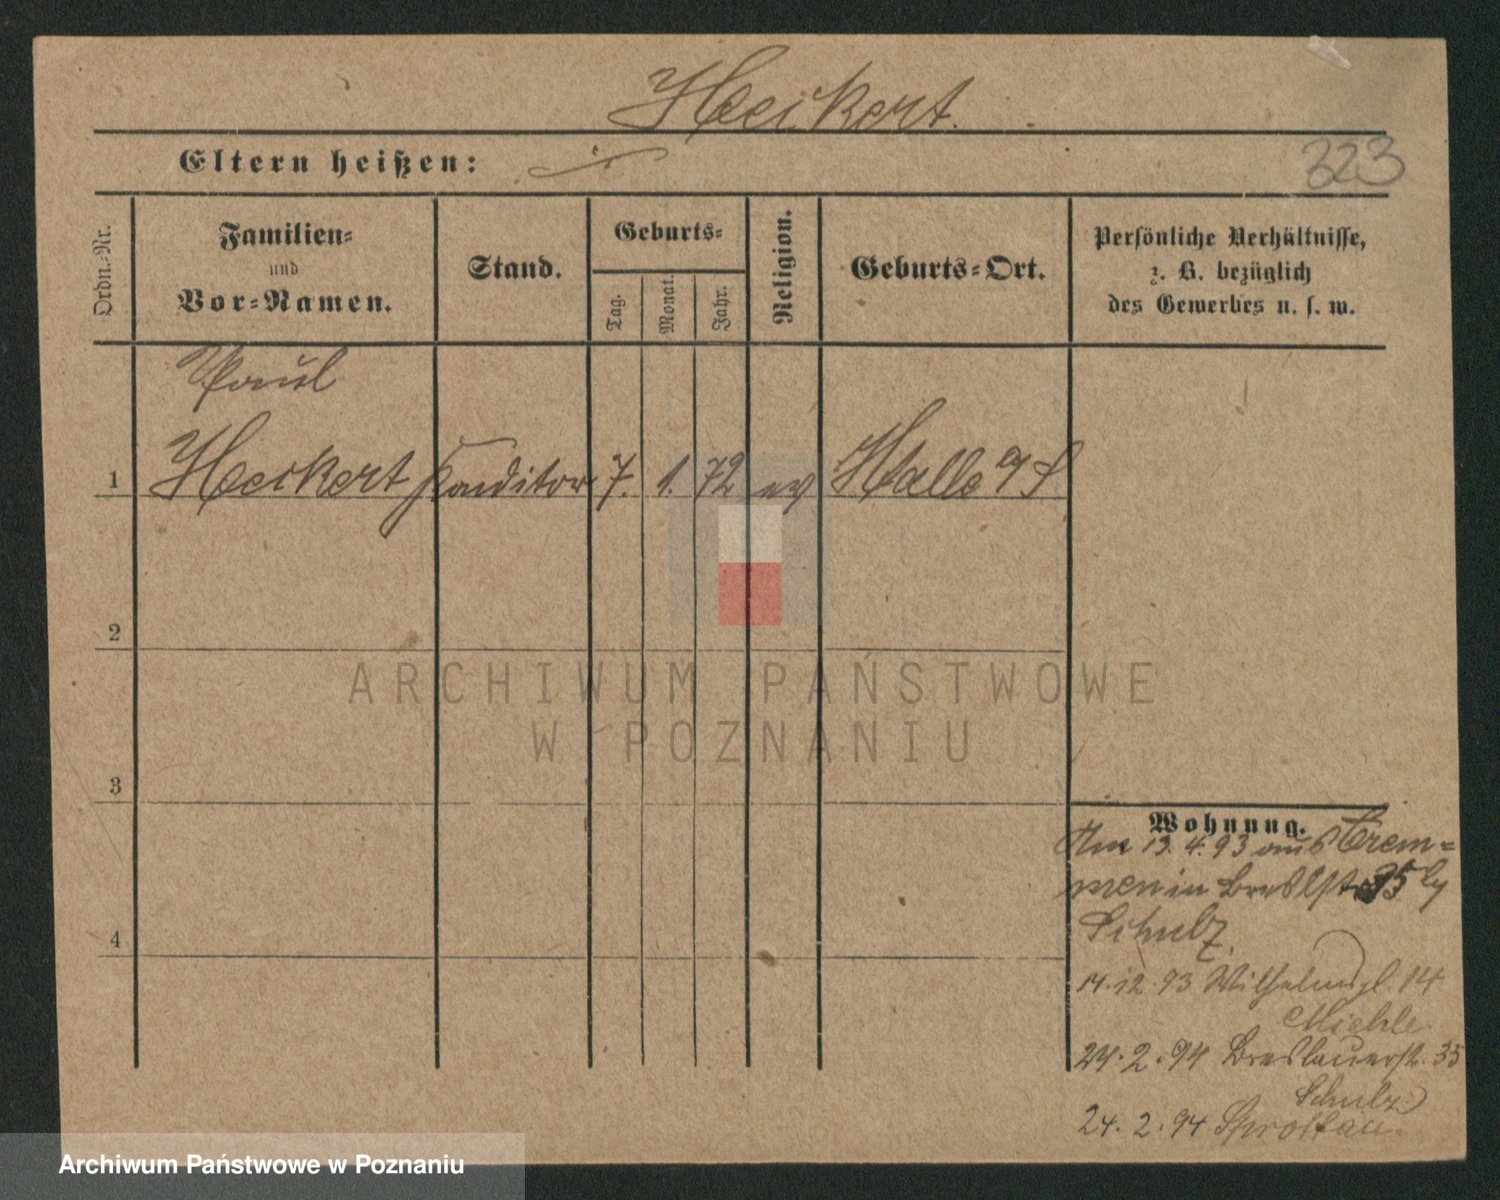 Heckert.
323
Eltern heißen:
Ordn.-Nr.
Familien-
und
Vor-Namen.
Stand.
Geburts-
Tag.
Monat.
Jahr.
Religion.
Geburts-Ort.
Persönliche Verhältnisse,
z. B. bezüglich
des Gewerbes u. s. w.
Paul
1 Heckert Konditor 7. 1. 72 ev Halle a/S
2
3
4
Wohnung.
Am 13. 4. 93 aus Crem-
men in Breslstr 35 by
Schulz.
14. 12. 93 Wilhelmspl. 14
Miehle
24. 2. 94 Breslauerstr. 35
Schulz
24. 2. 94 Sprottau.
ARCHIWUM PAŃSTWOWE
W POZNANIU
Archiwum Państwowe w Poznaniu